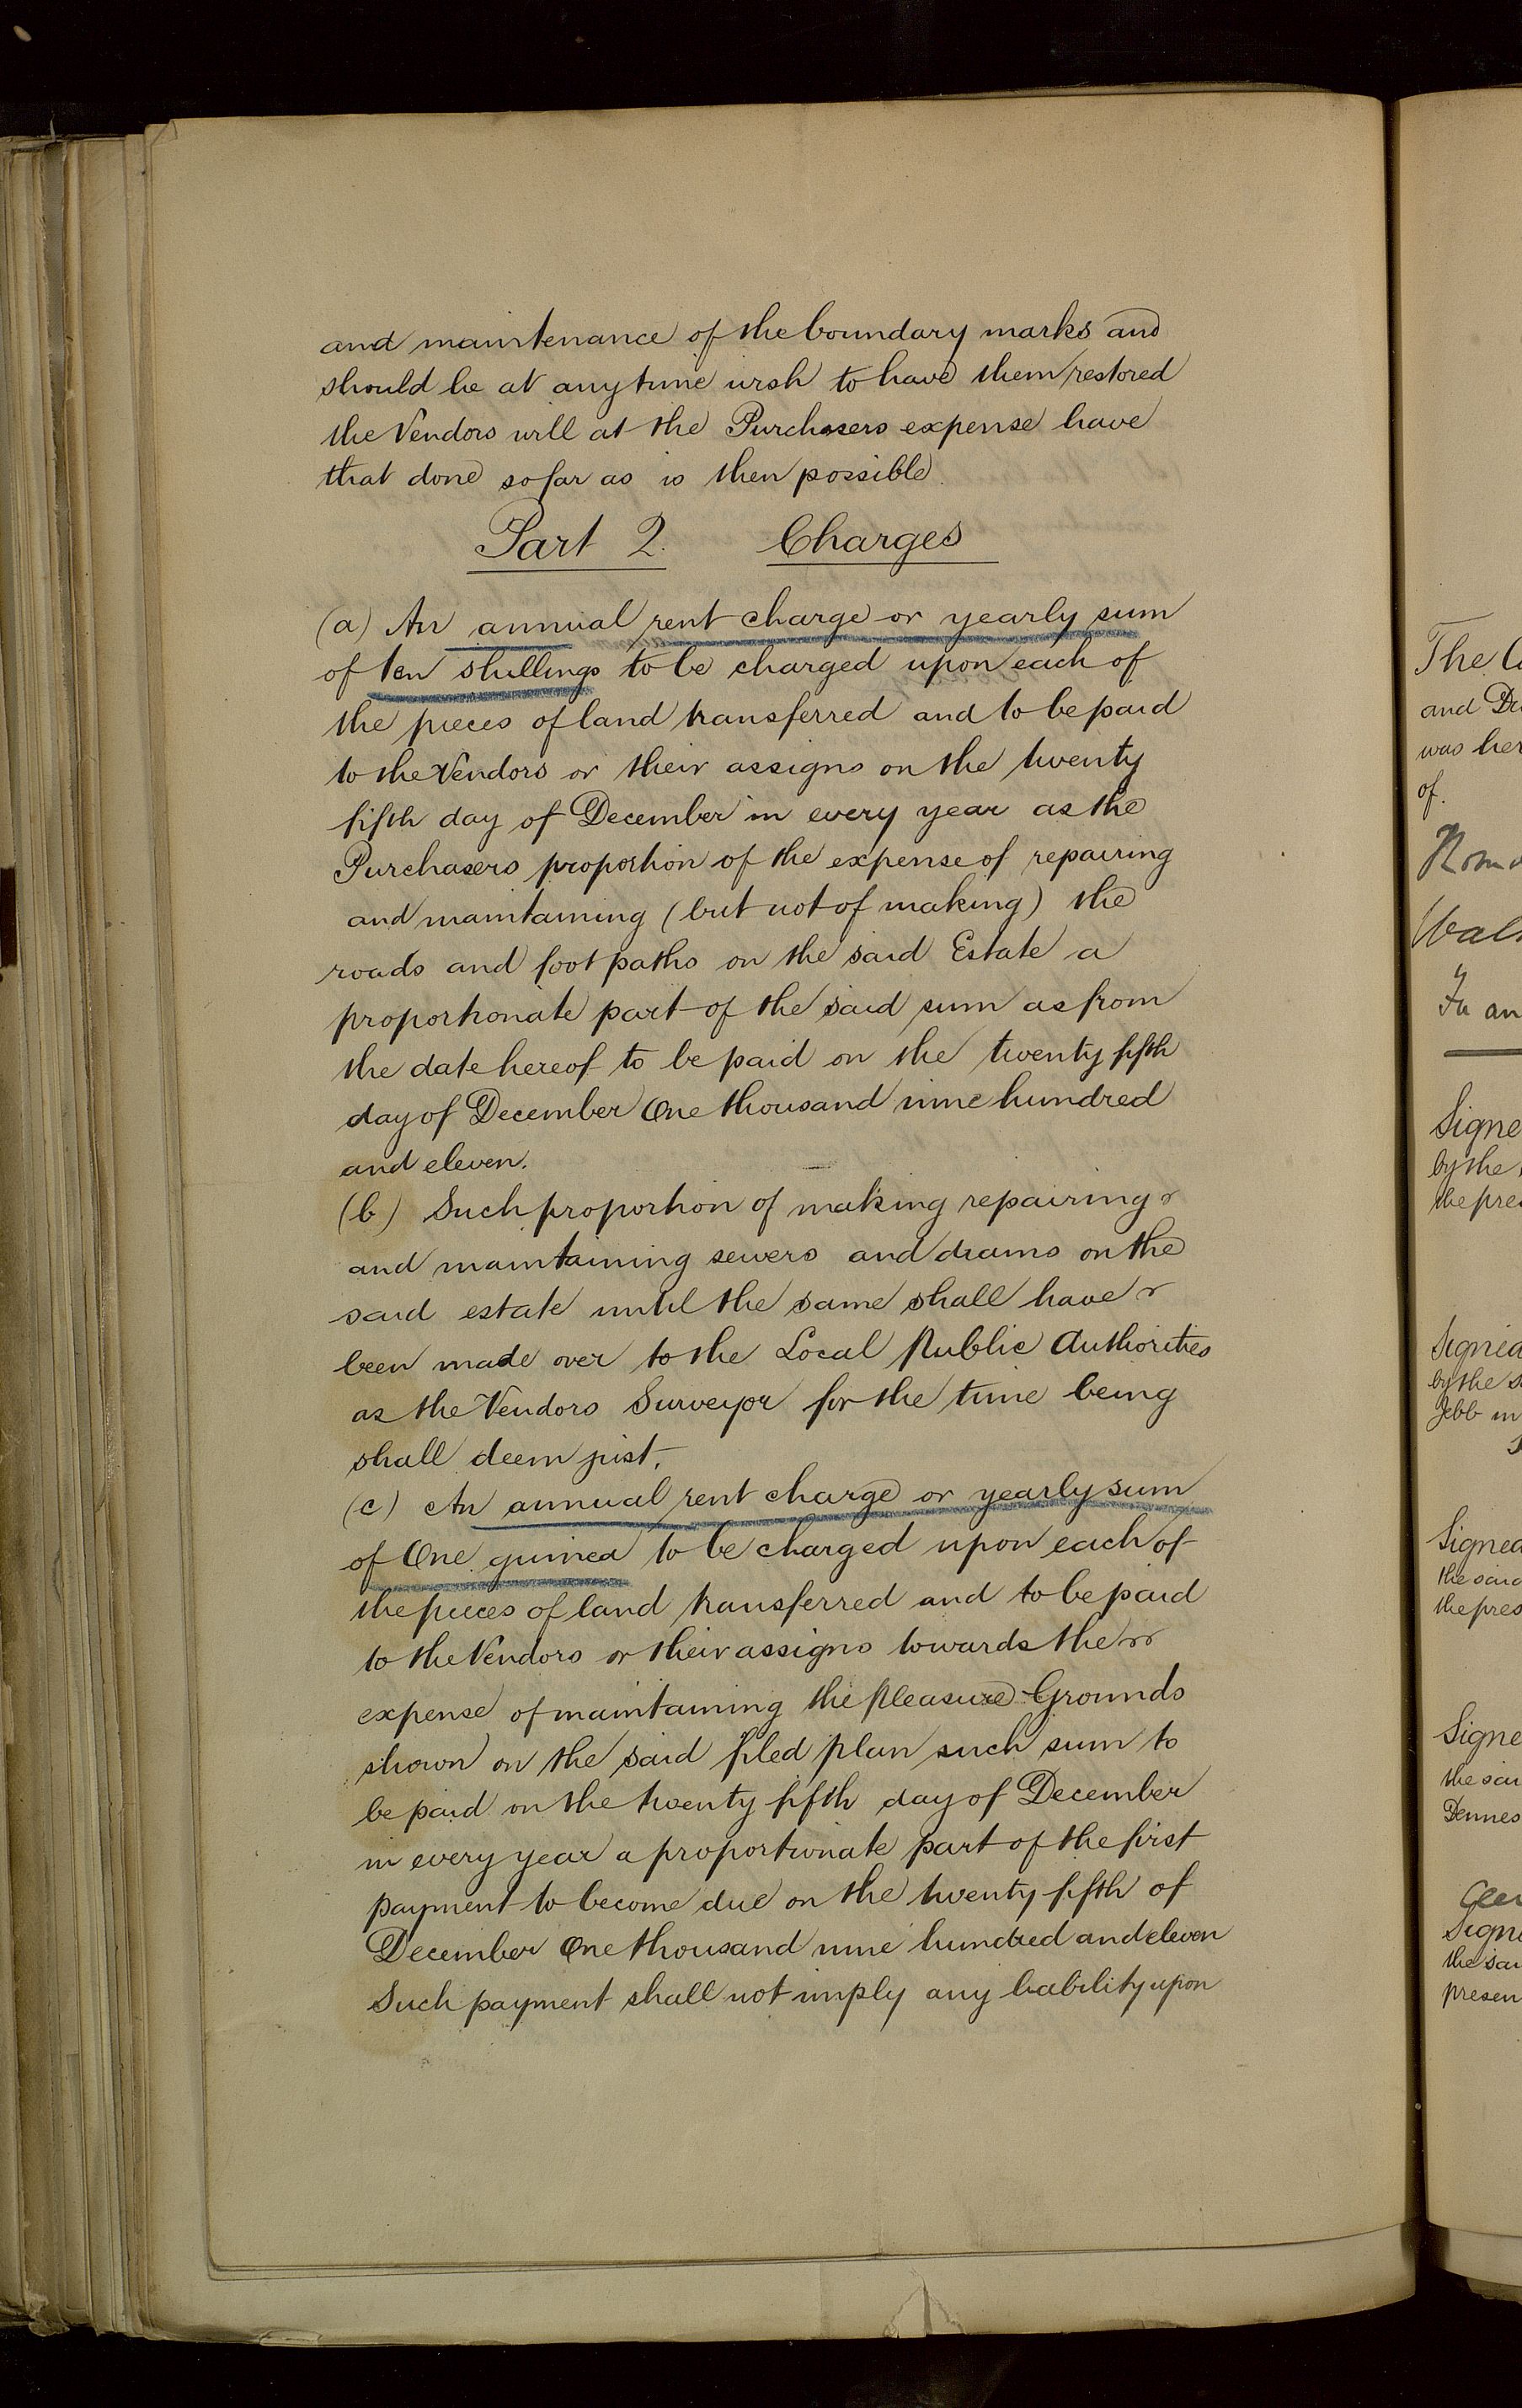 and maintenance of the boundary marks and
should he at any time wish to have them restored
the Vendors will at the Purchasers expense have
that done so far as is then possible.
Part 2. Charges
(a) An annual rent charge or yearly sum
of ten shillings to be charged upon each of
the pieces of land transferred and to be paid
to the Vendors or their assigns on the twenty
fifth day of December in every year as the
Purchasers proportion of the expense of repairing
and maintaining (but not of making) the
roads and foot paths on the said Estate a
proportionate part of the said sum as from
the date hereof to be paid on the twenty fifth
day of December One thousand nine hundred
and eleven.
(b) Such proportion of making repairing
and maintaining sewers and drains on the
said estate until the same shall have
been made over to the Local Public Authorities
as the Vendors Surveyor for the time being
shall deem just.
(c) An annual rent charge or yearly sum
of One guinea to be charged upon each of
the pieces of land transferred and to be paid
to the Vendors or their assigns towards the
expense of maintaining the Pleasure Grounds
shown on the said filed plan such sum to
be paid on the twenty fifth day of December
in every year a proportionate part of the first
payment to become due on the twenty fifth of
December One thousand nine hundred and eleven
Such payment shall not imply any liability upon
The
and
was her
of.
In an
Signe
by the
the pre
Signed
by the s
Jebb in
Signed
the said
the pres
Signe
the sai
Dennes
Signe
the sai
presen